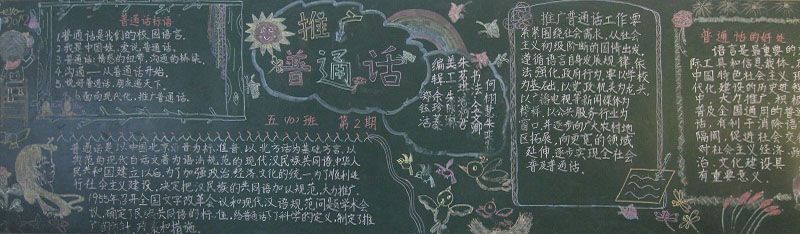 普通话标语
1.普通话是我们的校园语言。
2.我是中国娃，爱说普通话。
3.普通话：情感的纽带，沟通的桥梁。
4.沟通——从普通话开始。
5.说好普通话，朋友遍天下。
6.面向现代化，推广普通话。
推广
普通话
五（1）班 第2期
书法
美工
编辑
普通话是以中国北京语音为标准音，以北方话为基础方言，以
典范的现代白话文著为语法规范的现代汉民族共同语。中华人
民共和国建立以后，为了加强政治经济文化的统一，为了顺利进
行社会主义建设，决定把汉民族的共同语加以规范，大力推广。
1955年召开全国文字改革会议和现代汉语规范问题学术会
议，确定了民族共同语的标准，给普通话下了科学的定义，制定了推
广的方针、政策和措施。
推广普通话工作要
紧紧围绕社会需求，从社会
主义初级阶段的国情出发，
遵循语言自身发展规律，依
法强化政府行为，要以学校
为基础，以党政机关为龙头，
以广播电视等新闻媒体为
榜样，以公共服务行业为
窗口，并逐步向广大农村地
区拓展，向更宽的领域
延伸，逐步实现全社会
普及普通话。
普通话的好处
语言是最重要的交
际工具和信息载体。在
中国特色社会主义现
代化建设的历史进
中，大力推广、积极
普及全国通用的普
通话，有利于消除语言
隔阂，促进社会交
对社会主义经济、政
治、文化建设具
有重要意义。